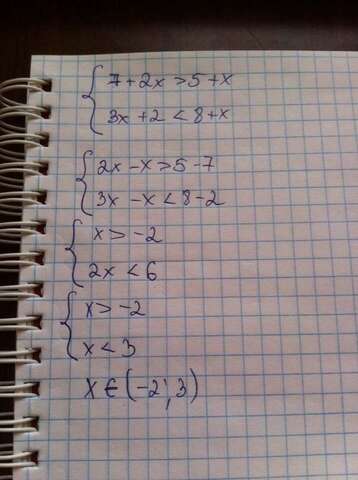 7+2x>5+x
3x+2<8+x
2x-x>5-7
3x-x<8-2
x>-2
2x<6
x>-2
x<3
x∈(-2;3)